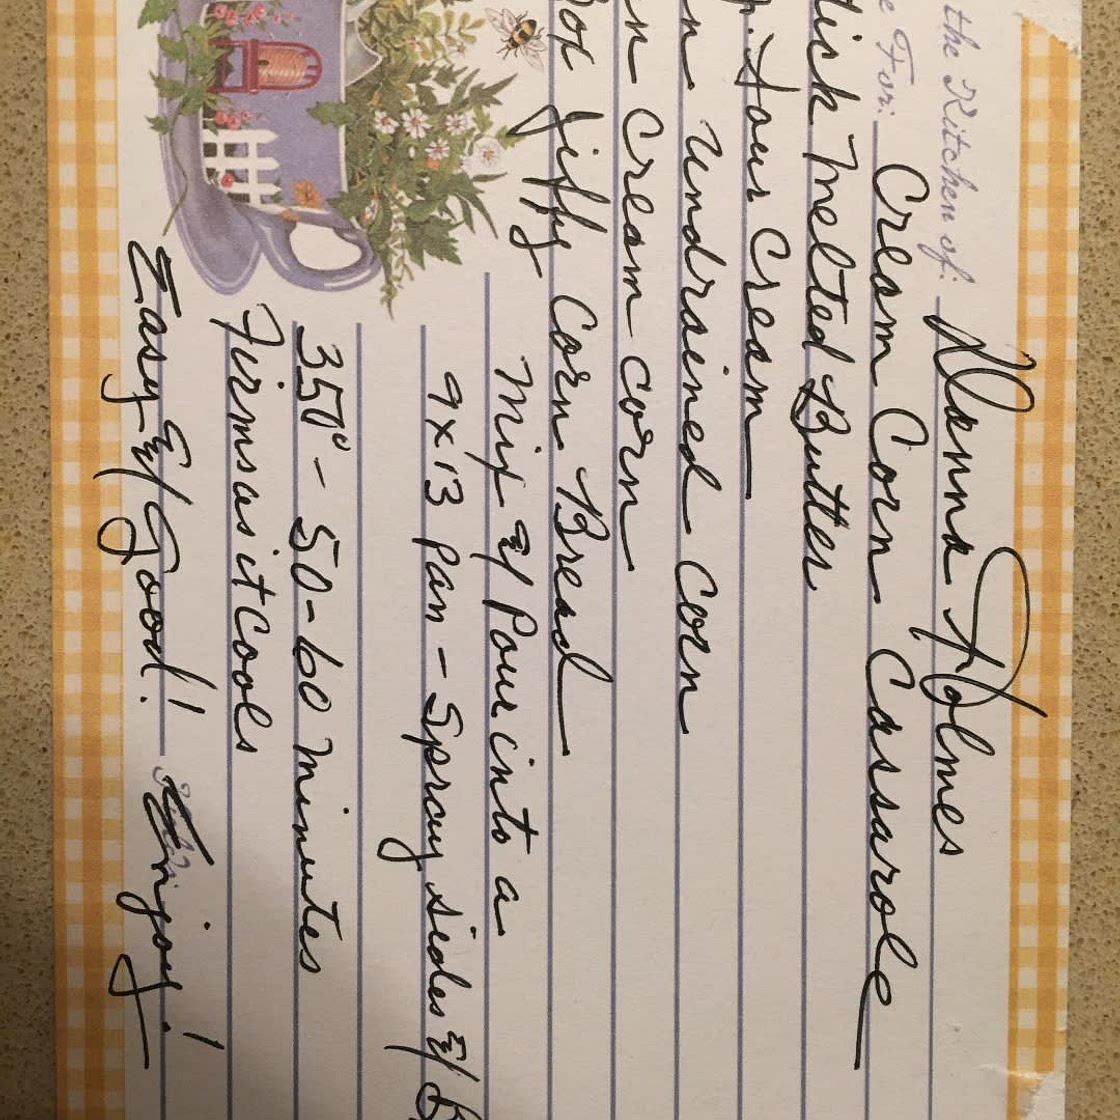 the Kitchen of: Donna Holmes
e For: Cream Corn Cassarole
tick Melted Butter
Sour Cream
n Undrained Corn
n Cream corn
Box Jiffy Corn Bread
Mix & Pour into a
9x13 Pan - Spray sides &
350° - 50-60 minutes
Firms as it Cools
Easy & Good! Enjoy!